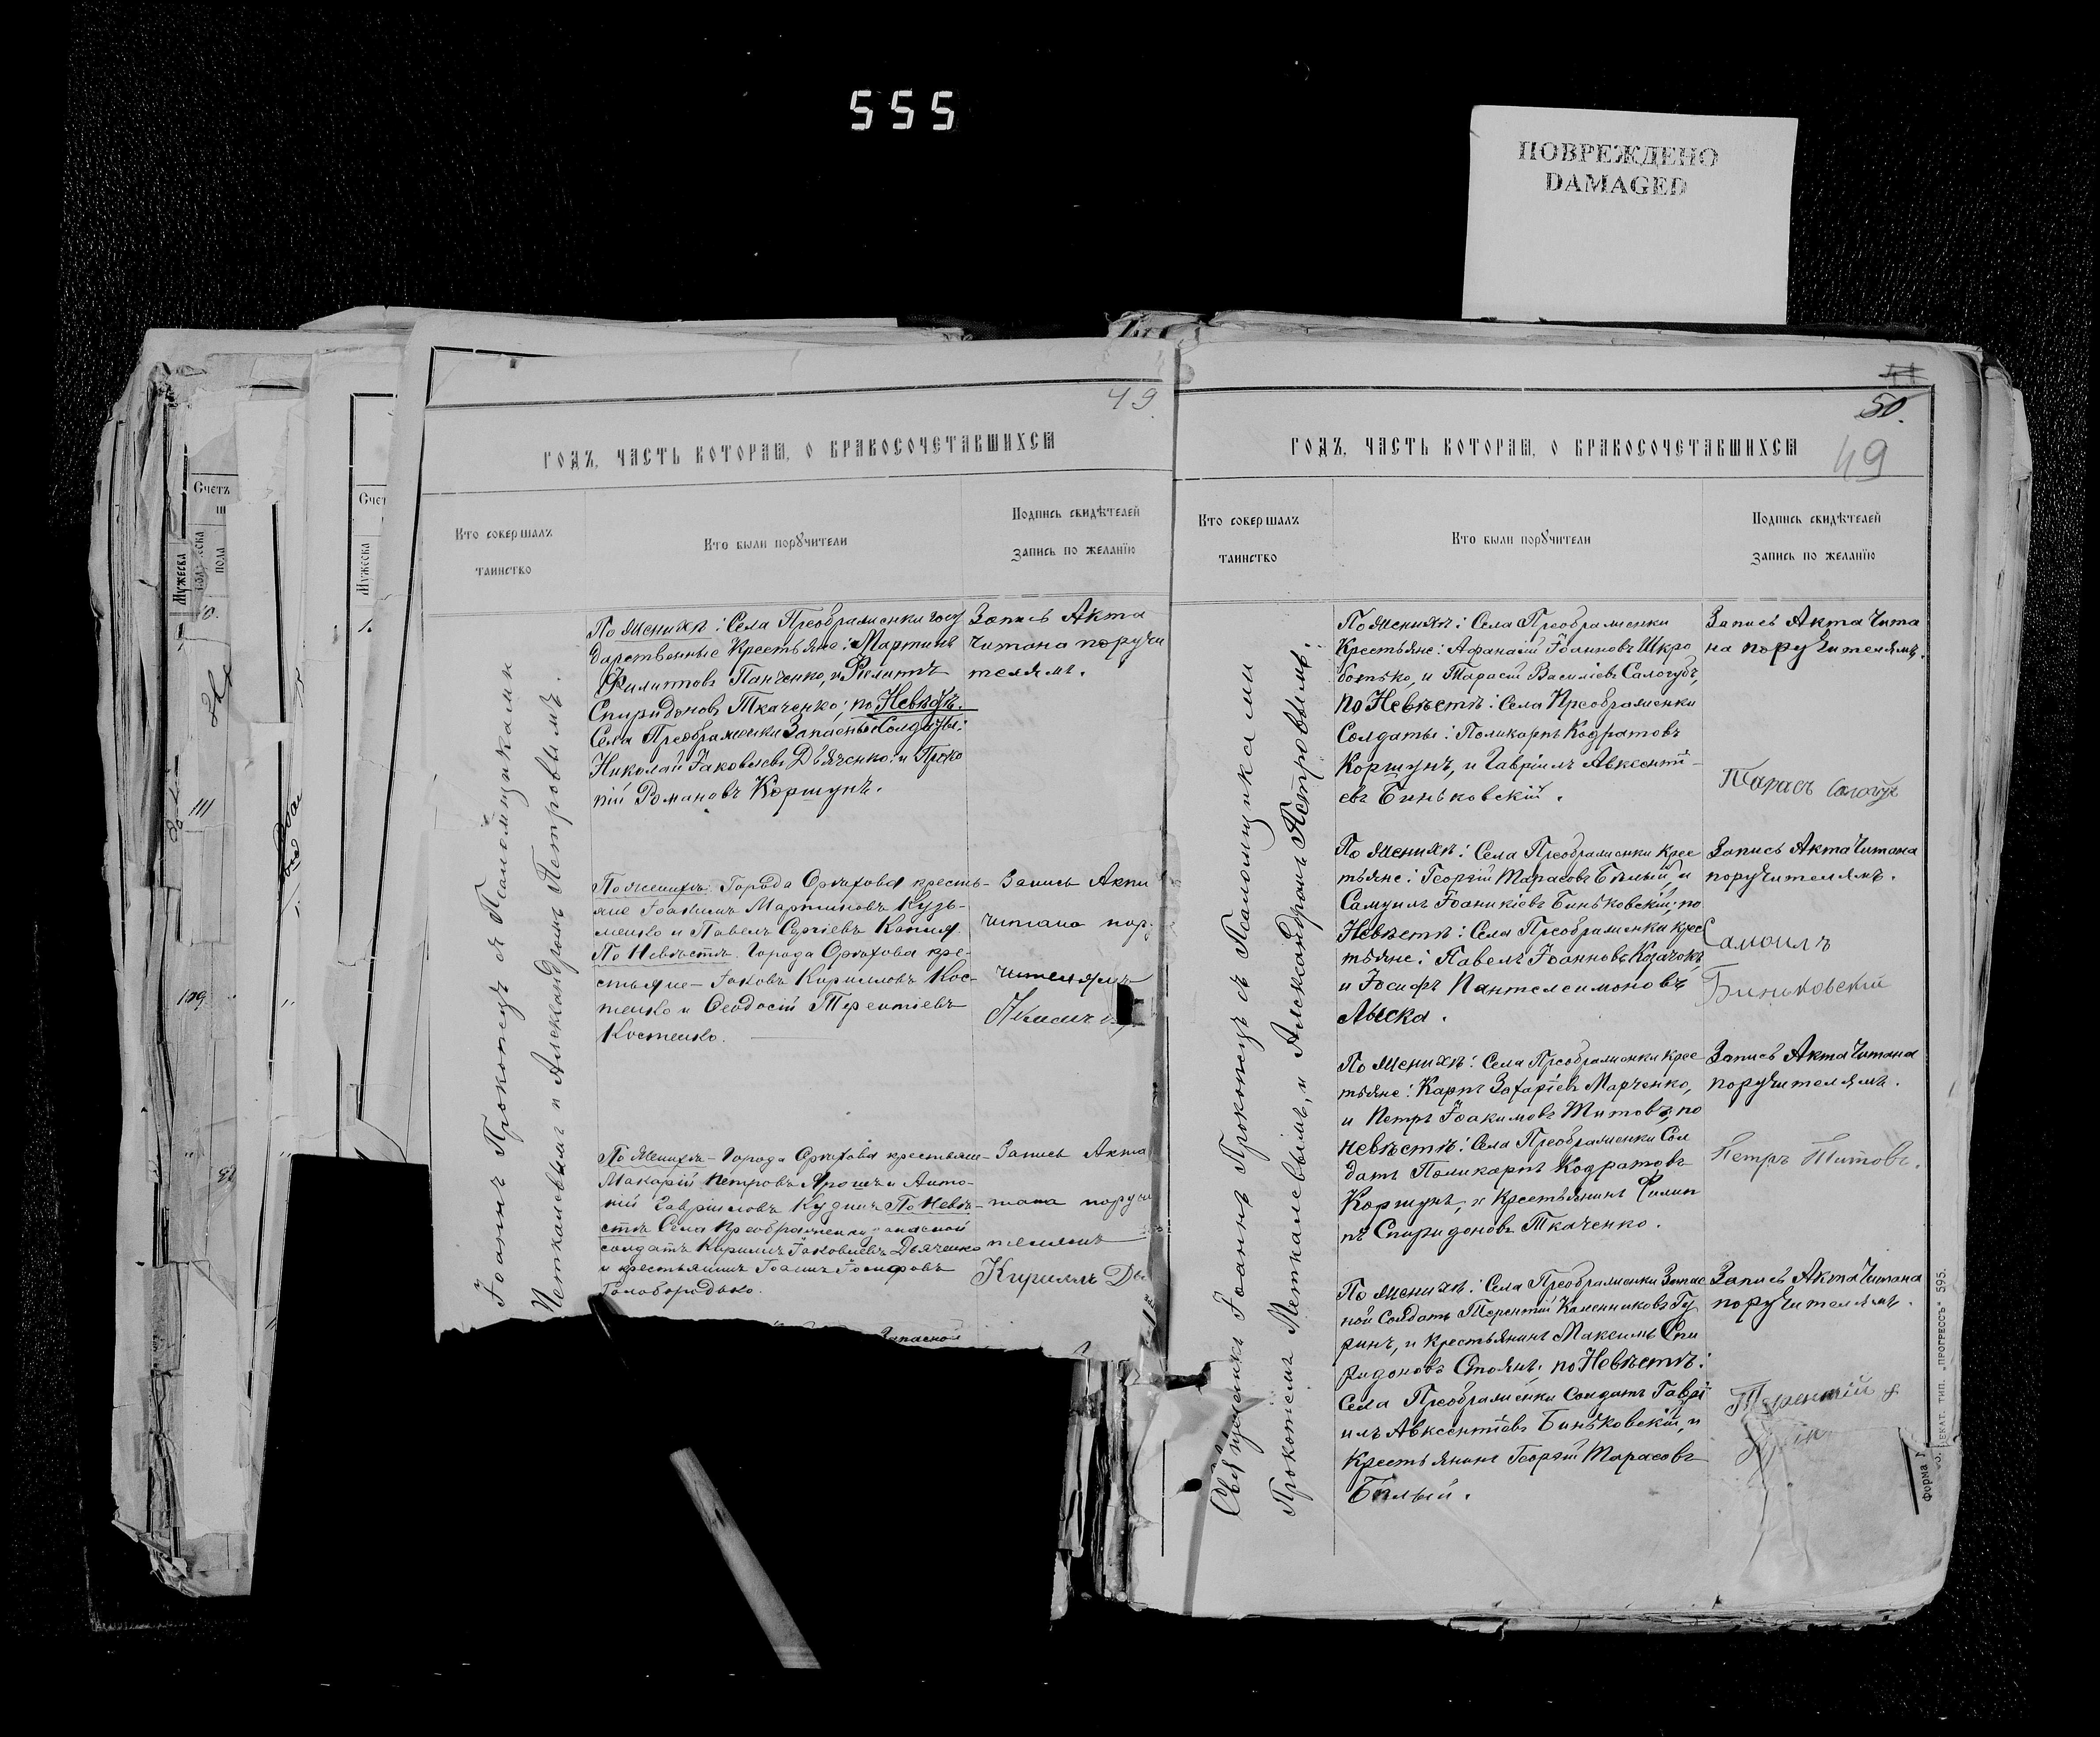 555
ПОВРЕЖДЕНО
DAMAGED
Счетъ
Мужеска
пола
Счет
Мужеска
111
109
49.
ГОДЪ, ЧАСТЬ ВТОРАЯ, О БРАКОСОЧЕТАВШИХСЯ
Кто совершалъ
таинство
Кто были поручители
Подпись свидѣтелей
запись по желанію
Іоаннъ Прокопецъ съ Псаломщиками
и Александромъ Петровымъ.
По Женихѣ: Села Преображенки госу
дарственные Крестьяне: Мартинъ
Филипповъ Панченко, и Филиппъ
Спиридоновъ Ткаченко; по Невѣстѣ:
Села Преображенки Запасные Солдаты:
Николай Іаковлевъ Дьяченко и Проко
пій Романовъ Коршунъ.
Запись Акта
читана поручи
телямъ.
По женихѣ: Города Орѣхова кресть-
яне Іоакимъ Мартиновъ Кузь-
менко и Павелъ Сергіевъ
По Невѣстѣ. Города Орѣхова кре-
стьяне - Іаковъ Кирилловъ Кос-
тенко и Ѳеодосій Терентіевъ
Костенко.
Запись Акта
читана пору
чителямъ
По Женихѣ - Города Орѣхова крестьяне -
Макарій Петровъ Ярошъ и Анто-
ній Гавриловъ Кудинъ По Невѣ-
стѣ Села Преображенки запасной
солдатъ Кириллъ Іаковлевъ Дьяченко
и крестьянинъ Іоаннъ Іосифовъ
Голобородько.
Запись Акта
тана поручи
телямъ
Кириллъ Дь
Запасной
50.
49
ГОДЪ, ЧАСТЬ ВТОРАЯ, О БРАКОСОЧЕТАВШИХСЯ
Кто совершалъ
таинство
Кто были поручители
Подпись свидѣтелей
запись по желанію
Священникъ Іоаннъ Прокопецъ съ Псаломщиками
Прокопіемъ Меткалевымъ, и Александромъ Петровымъ.
По Женихѣ: Села Преображенки
Крестьяне: Афанасій Іоанновъ Шкро
ботько, и Тарасій Василіевъ Салогубъ,
по Невѣстѣ: Села Преображенки
Солдаты: Поликарпъ Кодратовъ
Коршунъ, и Гавріилъ Авксенті-
евъ Биньковскій.
Запись Акта Чита
на поручителямъ.
Тарасъ Салогуб
По Женихѣ: Села Преображенки Крес
тьяне: Георгій Тарасовъ Бѣлый и
Самуилъ Іоаникіевъ Биньковскій; по
Невѣстѣ: Села Преображенки Крес
тьяне: Павелъ Іоанновъ Козачокъ,
и Іосифъ Пантелеимоновъ
Лыска.
Запись Акта Читана
поручителямъ.
Самоилъ
Биньковскій
По Женихѣ: Села Преображенки Крес
тьяне: Карпъ Захаріевъ Марченко,
и Петръ Іоакимовъ Титовъ; по
Невѣстѣ: Села Преображенки Сол
датъ Поликарпъ Кодратовъ
Коршунъ, и Крестьянинъ Филип
пъ Спиридоновъ Ткаченко.
Запись Акта Читана
поручителямъ.
Петръ Титовъ.
По Женихѣ: Села Преображенки Запас
ной Солдатъ Терентій Каленниковъ Гу
ринъ, и Крестьянинъ Максимъ Спи
ридоновъ Стоянъ; по Невѣстѣ:
Села Преображенки Солдатъ Гаврі
илъ Авксентіевъ Биньковскій, и
Крестьянинъ Георгій Тарасовъ
Бѣлый.
Запись Акта Читана
поручителямъ.
Терентій
ЕКАТ. ТИП. „ПРОГРЕССЪ" 595.
Форма